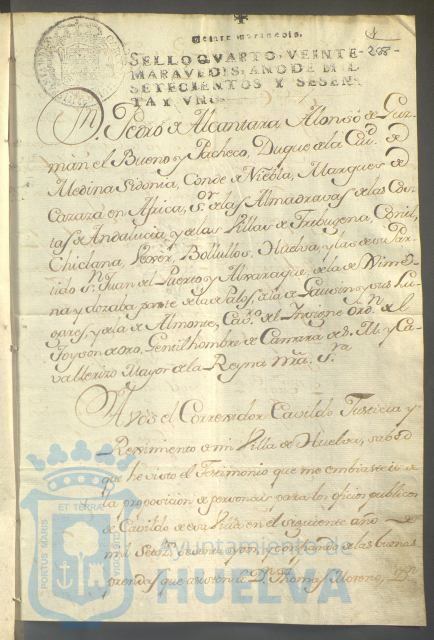 Veinte maravedis.
SELLO QVARTO, VEINTE
MARAVEDIS, AÑO DE MIL
SETECIENTOS Y SESEN
TA Y VNO.
268
Dn. Pedro de Alcantara Alonso de Guz
mán el Bueno y Pacheco, Duque de la Ciud. de
Medina Sidonia, Conde de Niebla, Marques de
Cazaza en Africa, Sr. de las Almadravas de las Cos
tas de Andalucia, y de las Villas de Trebugena, Conil,
Chiclana, Ximena, Bollullos, Huelva, y las de su Par
tido Sn. Juan del Puerto y Aljaraque, de la de Xime
na y dozaba parte de la de Palos, de la de Gausin y sus Lu
gares, y de la de Almonte, Cavo. del Insigne Ordn. de el
Toyson de oro, Gentilhombre de Camara de S. M. y Ca
vallerizo Mayor de la Reyna Ntra. Sra.
A vos el Correxidor Cavildo Justicia y
Reximiento de mi Villa de Huelva, sabed
que he visto el Testimonio que me embiasteis de
la proposicion de personas para los oficios publicos
de Cavildo de esa Villa en el siguiente año de
mil Setezs. sesenta y confiando de las buenas
prendas que asisten a Dn. Thomas Moreno, Dn.
PORTUS MARIS
ET TERRÆ
CUSTODIA
Ayuntamiento de
HUELVA